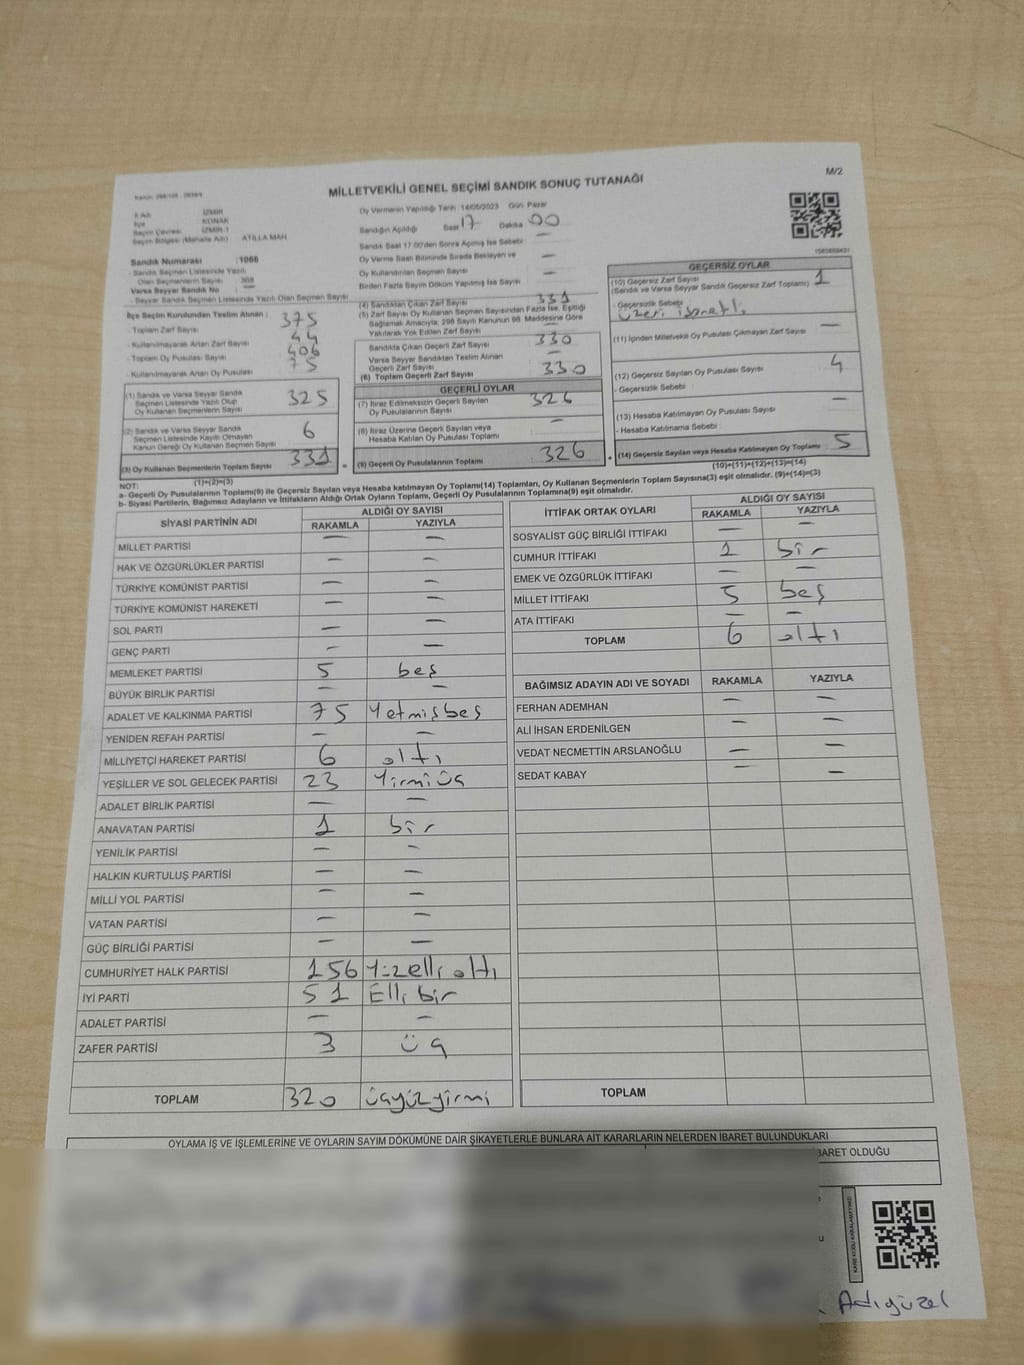 M/2
MİLLETVEKİLİ GENEL SEÇİMİ SANDIK SONUÇ TUTANAĞI
İl Adı : İZMİR
İlçe : KONAK
Seçim Çevresi : İZMİR-1
Seçim Bölgesi (Mahalle Adı) : ATİLLA MAH.
Oy Vermenin Yapıldığı Tarih :14/05/2023 Gün: Pazar
Sandığın Açıldığı Saat 17 Dakika 00
Sandık Saat 17:00'den Sonra Açılmış İse Sebebi : —
Oy Verme Saati Bitiminde Sırada Bekleyen ve
Oy Kullandırılan Seçmen Sayısı —
Birden Fazla Seçim Döküm Yapılmış İse Sayısı —
Sandık Numarası :1066
- Sandık Seçmen Listesinde Yazılı
Olan Seçmenlerin Sayısı : 368
Varsa Seyyar Sandık No : —
- Seyyar Sandık Seçmen Listesinde Yazılı Olan Seçmen Sayısı
İlçe Seçim Kurulundan Teslim Alınan :
- Toplam Zarf Sayısı : 375
- Kullanılmayarak Artan Zarf Sayısı : 44
- Toplam Oy Pusulası Sayısı : 406
- Kullanılmayarak Artan Oy Pusulası : 75
(1) Sandık ve Varsa Seyyar Sandık
Seçmen Listesinde Yazılı Olup
Oy Kullanan Seçmenlerin Sayısı 325
(2) Sandık ve Varsa Seyyar Sandık
Seçmen Listesinde Kayıtlı Olmayan
Kanun Gereği Oy Kullanan Seçmen Sayısı 6
(3) Oy Kullanan Seçmenlerin Toplam Sayısı 331
(1)+(2)=(3)
(4) Sandıktan Çıkan Zarf Sayısı 331
(5) Zarf Sayısı Oy Kullanan Seçmen Sayısından Fazla İse, Eşitliği
Sağlamak Amacıyla, 298 Sayılı Kanunun 98. Maddesine Göre
Yakılarak Yok Edilen Zarf Sayısı —
Sandıkta Çıkan Geçerli Zarf Sayısı 330
Varsa Seyyar Sandıktan Teslim Alınan
Geçerli Zarf Sayısı —
(6) Toplam Geçerli Zarf Sayısı 330
GEÇERLİ OYLAR
(7) İtiraz Edilmeksizin Geçerli Sayılan
Oy Pusulalarının Sayısı 326
(8) İtiraz Üzerine Geçerli Sayılan veya
Hesaba Katılan Oy Pusulası Toplamı —
(9) Geçerli Oy Pusulalarının Toplamı 326
GEÇERSİZ OYLAR
(10) Geçersiz Zarf Sayısı
(Sandık ve Varsa Seyyar Sandık Geçersiz Zarf Toplamı) 1
- Geçersizlik Sebebi : üzeri işaretli
(11) İçinden Milletvekili Oy Pusulası Çıkmayan Zarf Sayısı —
(12) Geçersiz Sayılan Oy Pusulası Sayısı 4
- Geçersizlik Sebebi
(13) Hesaba Katılmayan Oy Pusulası Sayısı —
- Hesaba Katılmama Sebebi
(14) Geçersiz Sayılan veya Hesaba Katılmayan Oy Toplamı 5
(10)+(11)+(12)+(13)=(14)
NOT:
a- Geçerli Oy Pusulalarının Toplamı(9) ile Geçersiz Sayılan veya Hesaba katılmayan Oy Toplamı(14) Toplamları, Oy Kullanan Seçmenlerin Toplam Sayısına(3) eşit olmalıdır. (9)+(14)=(3)
b- Siyasi Partilerin, Bağımsız Adayların ve İttifakların Aldığı Ortak Oyların Toplamı, Geçerli Oy Pusulalarının Toplamına(9) eşit olmalıdır.
SİYASİ PARTİNİN ADI ALDIĞI OY SAYISI
RAKAMLA YAZIYLA
MİLLET PARTİSİ — —
HAK VE ÖZGÜRLÜKLER PARTİSİ — —
TÜRKİYE KOMÜNİST PARTİSİ — —
TÜRKİYE KOMÜNİST HAREKETİ — —
SOL PARTİ — —
GENÇ PARTİ — —
MEMLEKET PARTİSİ 5 beş
BÜYÜK BİRLİK PARTİSİ — —
ADALET VE KALKINMA PARTİSİ 75 Yetmişbeş
YENİDEN REFAH PARTİSİ — —
MİLLİYETÇİ HAREKET PARTİSİ 6 altı
YEŞİLLER VE SOL GELECEK PARTİSİ 23 Yirmiüç
ADALET BİRLİK PARTİSİ — —
ANAVATAN PARTİSİ 1 bir
YENİLİK PARTİSİ — —
HALKIN KURTULUŞ PARTİSİ — —
MİLLİ YOL PARTİSİ — —
VATAN PARTİSİ — —
GÜÇ BİRLİĞİ PARTİSİ — —
CUMHURİYET HALK PARTİSİ 156 Yüzelli altı
İYİ PARTİ 51 Elli bir
ADALET PARTİSİ — —
ZAFER PARTİSİ 3 üç
TOPLAM 320 üçyüzyirmi
İTTİFAK ORTAK OYLARI ALDIĞI OY SAYISI
RAKAMLA YAZIYLA
SOSYALİST GÜÇ BİRLİĞİ İTTİFAKI — —
CUMHUR İTTİFAKI 1 bir
EMEK VE ÖZGÜRLÜK İTTİFAKI — —
MİLLET İTTİFAKI 5 beş
ATA İTTİFAKI — —
TOPLAM 6 altı
BAĞIMSIZ ADAYIN ADI VE SOYADI RAKAMLA YAZIYLA
FERHAN ADEMHAN — —
ALİ İHSAN ERDENİLGEN — —
VEDAT NECMETTİN ARSLANOĞLU — —
SEDAT KABAY — —
TOPLAM
OYLAMA İŞ VE İŞLEMLERİNE VE OYLARIN SAYIM DÖKÜMÜNE DAİR ŞİKAYETLERLE BUNLARA AİT KARARLARIN NELERDEN İBARET BULUNDUKLARI
BARET OLDUĞU
KARE KODU KARALAMAYINIZ!
Adıgüzel